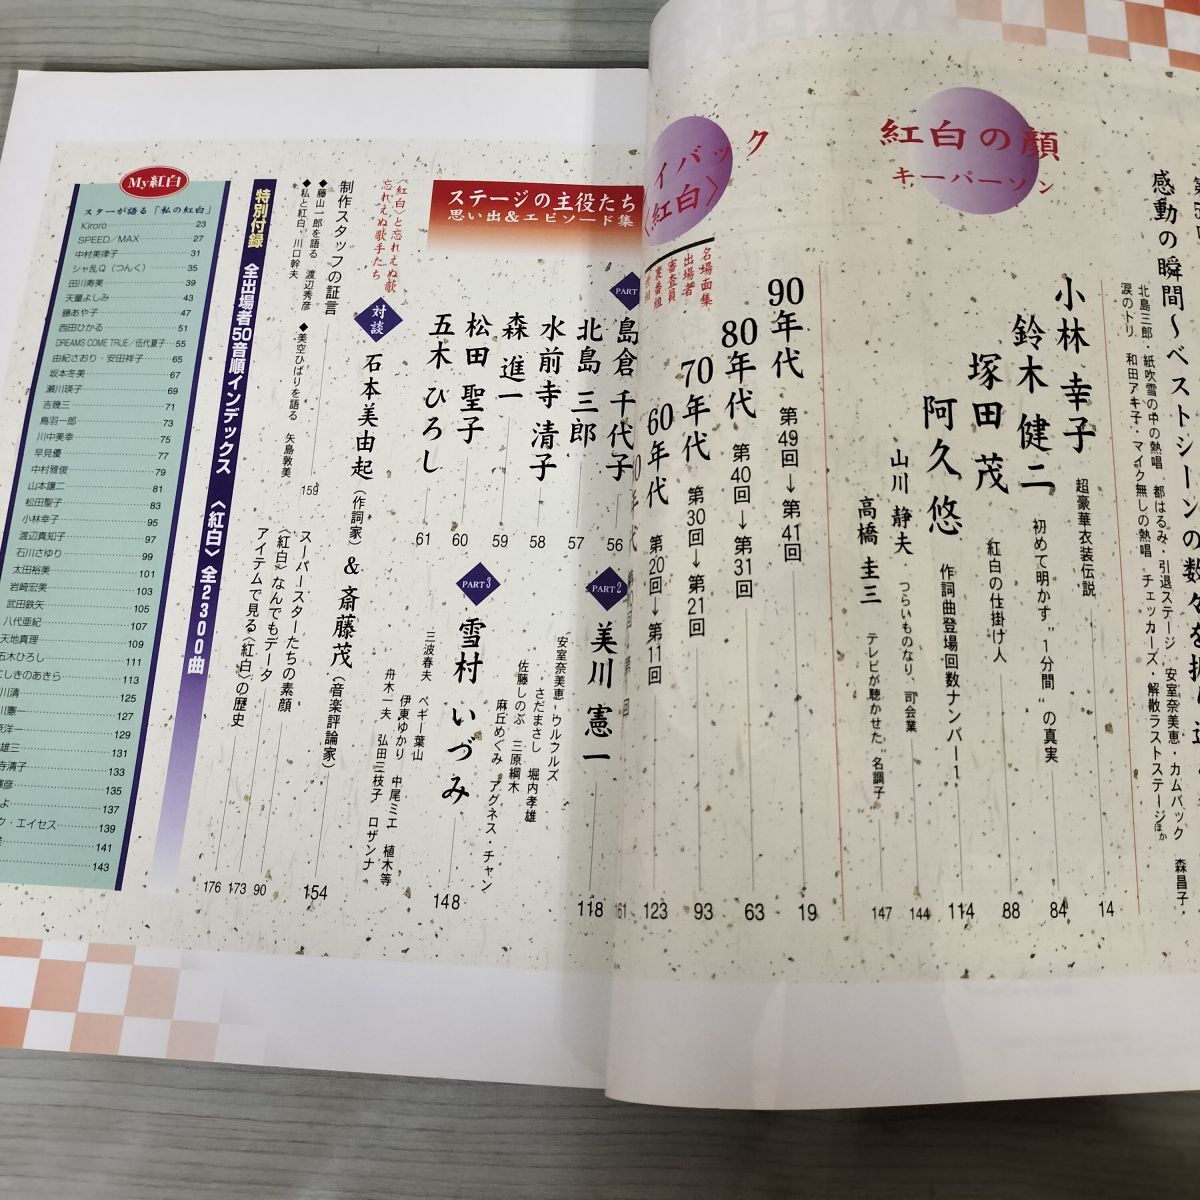 感動の瞬間〜ベストシーンの数々を振り
北島三郎・紙吹雪の中の熱唱 都はるみ・引退ステージ 安室奈美恵・カムバック 森昌子・
涙のトリ 和田アキ子・マイク無しの熱唱 チェッカーズ・解散ラストステージほか
14
紅白の顔
キーパーソン
小林 幸子 超豪華衣装伝説 84
鈴木 健二 初めて明かす“1分間”の真実 88
塚田 茂 紅白の仕掛け人 114
阿久 悠 作詞曲登場回数ナンバー1 144
山川 静夫 つらいものなり、司会業 147
高橋 圭三 テレビが聴かせた“名調子”
イバック
〈紅白〉
名場面集
出場者
審査員
裏番組
90年代 第49回→第41回 19
80年代 第40回→第31回 63
70年代 第30回→第21回 93
60年代 第20回→第11回 123
161
ステージの主役たち
思い出&エピソード集
PART
島倉 千代子 56
北島 三郎 57
水前寺 清子 58
森 進一 59
松田 聖子 60
五木 ひろし 61
PART2
美川 憲一 118
安室奈美恵・ウルフルズ
さだまさし 堀内孝雄
佐藤しのぶ 三原綱木
麻丘めぐみ アグネス・チャン
PART3
雪村 いづみ 148
三波春夫 ペギー葉山
伊東ゆかり 中尾ミエ 植木等
舟木一夫 弘田三枝子 ロザンナ
〈紅白〉と忘れえぬ歌
忘れえぬ歌手たち
対談
石本美由起(作詞家)&斎藤茂(音楽評論家) 154
制作スタッフの証言
◆藤山一郎を語る 渡辺秀彦 ◆美空ひばりを語る 矢島敦美
◆私と紅白 川口幹夫
159
スーパースターたちの素顔 90
〈紅白〉なんでもデータ 173
アイテムで見る〈紅白〉の歴史 176
特別付録 全出場者50音順インデックス 〈紅白〉全2300曲
My紅白
スターが語る「私の紅白」
Kiroro 23
SPEED/MAX 27
中村美律子 31
シャ乱Q(つんく) 35
田川寿美 39
天童よしみ 43
藤あや子 47
西田ひかる 51
DREAMS COME TRUE/伍代夏子 55
由紀さおり・安田祥子 65
坂本冬美 67
瀬川瑛子 69
吉幾三 71
鳥羽一郎 73
川中美幸 75
早見優 77
中村雅俊 79
山本譲二 81
松田聖子 83
小林幸子 95
渡辺真知子 97
石川さゆり 99
太田裕美 101
岩崎宏美 103
武田鉄矢 105
八代亜紀 107
天地真理 109
五木ひろし 111
にしきのあきら 113
川清 125
川憲一 127
洋一 129
雄三 131
寺清子 133
輝彦 135
よ 137
ク・エイセス 139
141
143